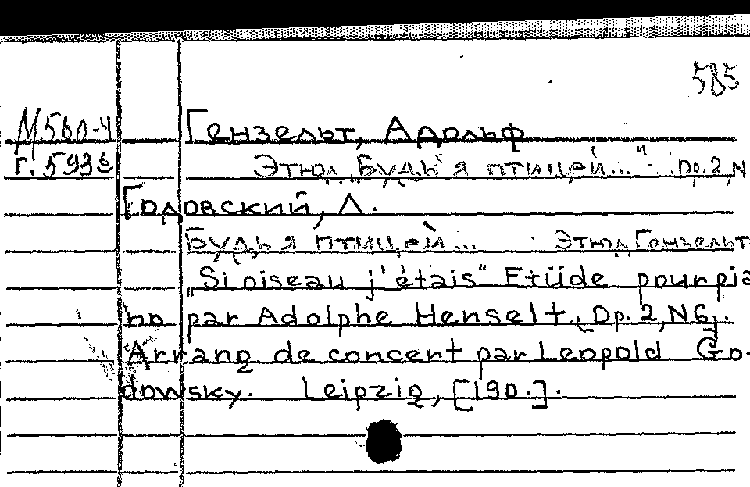 585
М560-4 Гензельт, Адольф
Г.593 Этюд „Будь я птицей..." Op.2, N
Годовский, Л.
Будь я птицей... Этюд Гензельт
„Si oiseau j'étais" Etüde pour pia-
no par Adolphe Henselt. [Op. 2, N6].
Arrang de concert par Leopold Go-
dowsky. Leipzig, [190.].